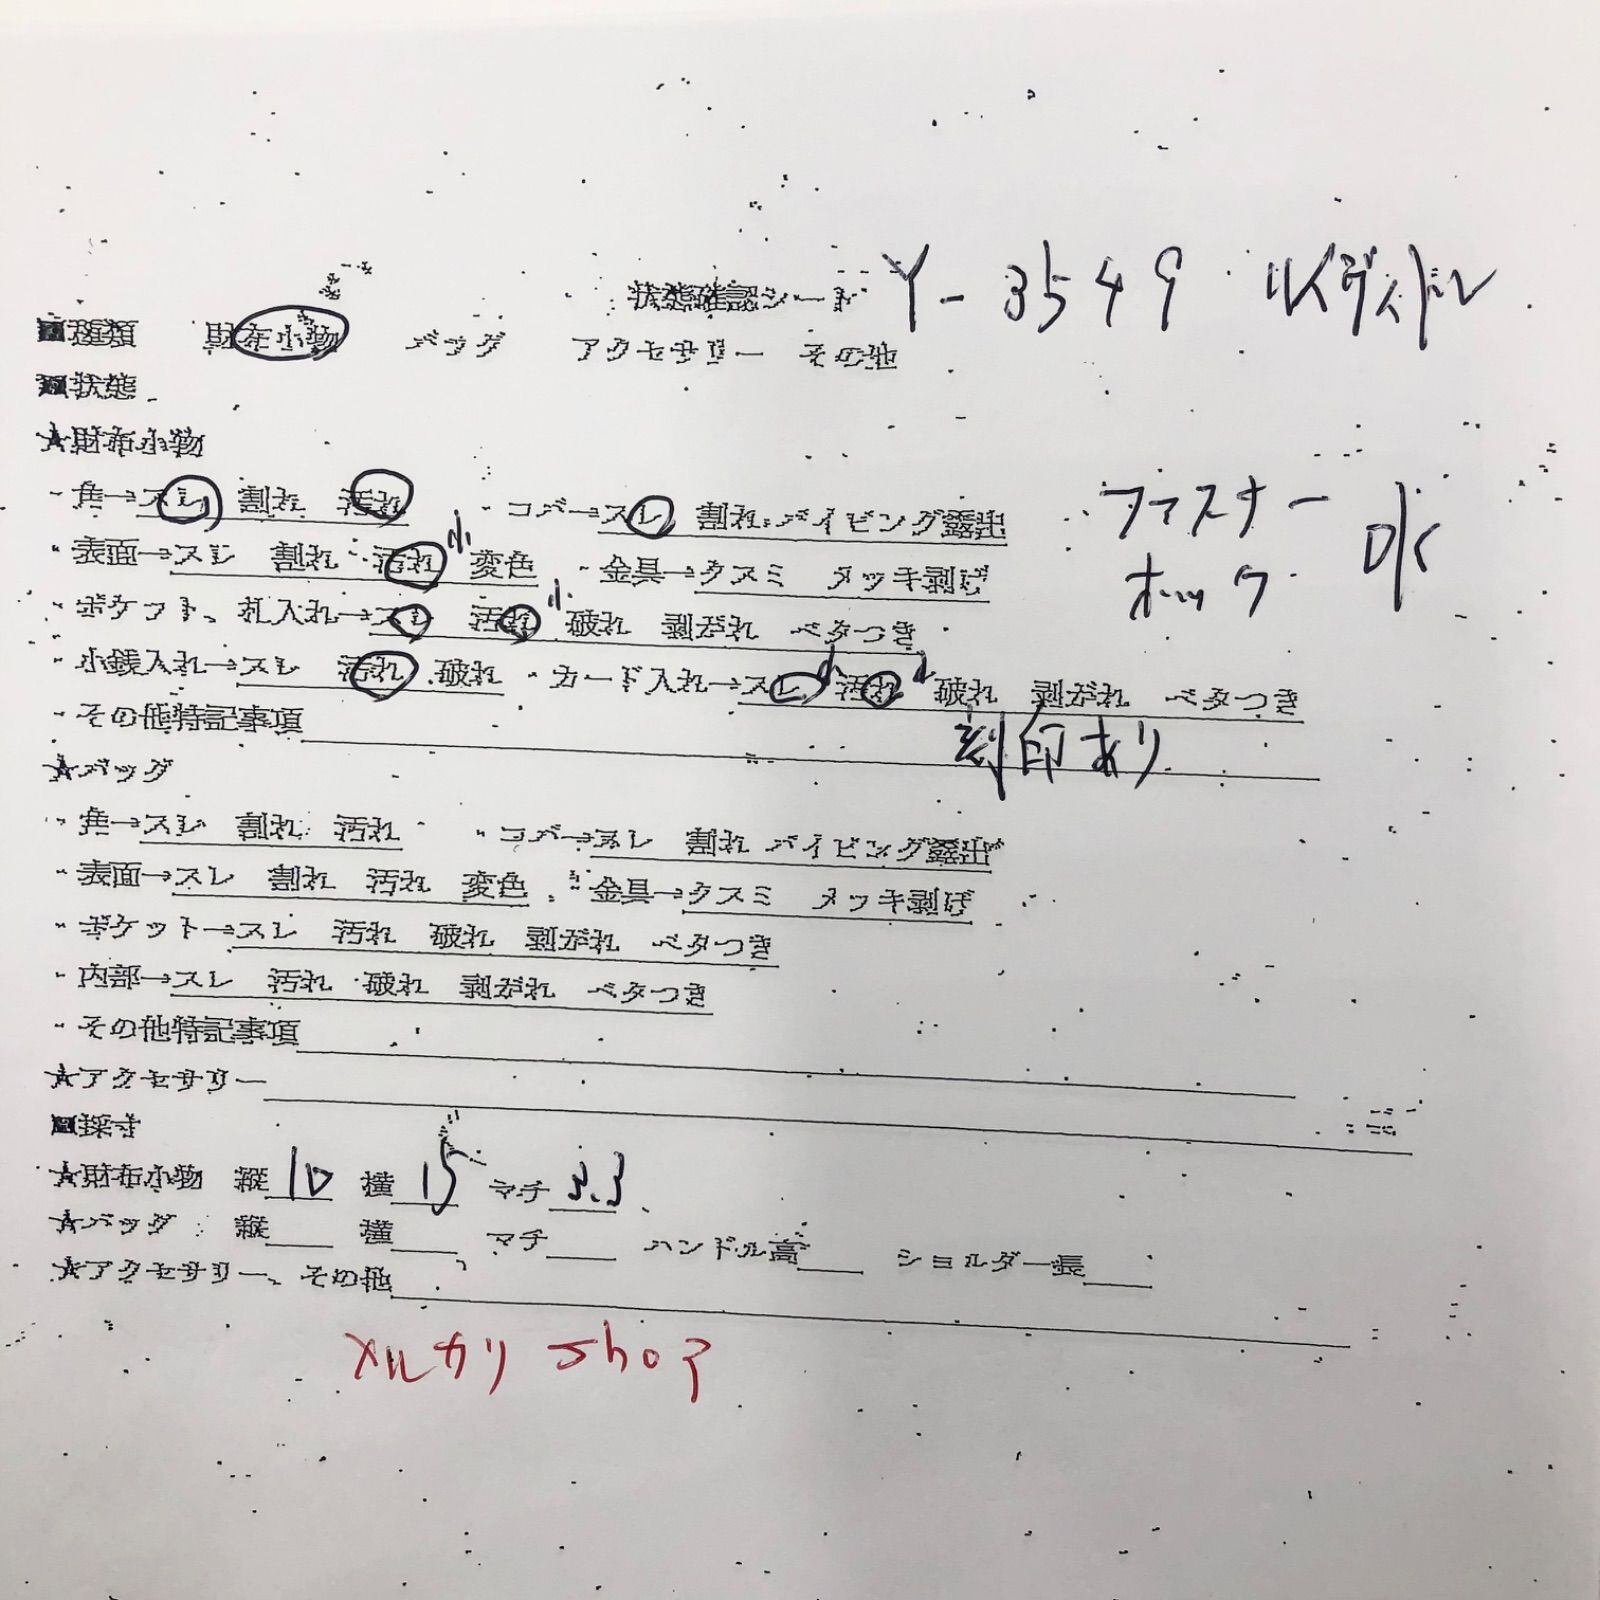 状態確認シート Y-3549 ルイヴィトン
■種類 財布小物 バッグ アクセサリー その他
■状態
★財布小物
・角→スレ 割れ 汚れ ・コバ→スレ 割れ パイピング露出 ファスナー OK
・表面→スレ 割れ 汚れ 小 変色 ・金具→クスミ メッキ剥げ ホック
・ポケット、札入れ→スレ 汚れ 小 破れ 剥がれ ベタつき
・小銭入れ→スレ 汚れ 破れ ・カード入れ→スレ 小 汚れ 小 破れ 剥がれ ベタつき
・その他特記事項 刻印あり
★バッグ
・角→スレ 割れ 汚れ ・コバ→スレ 割れ パイピング露出
・表面→スレ 割れ 汚れ 変色 ・金具→クスミ メッキ剥げ
・ポケット→スレ 汚れ 破れ 剥がれ ベタつき
・内部→スレ 汚れ 破れ 剥がれ ベタつき
・その他特記事項
★アクセサリー
■採寸
★財布小物 縦 10 横 15 マチ 3.3
★バッグ 縦 横 マチ ハンドル高 ショルダー長
★アクセサリー、その他
メルカリ shop